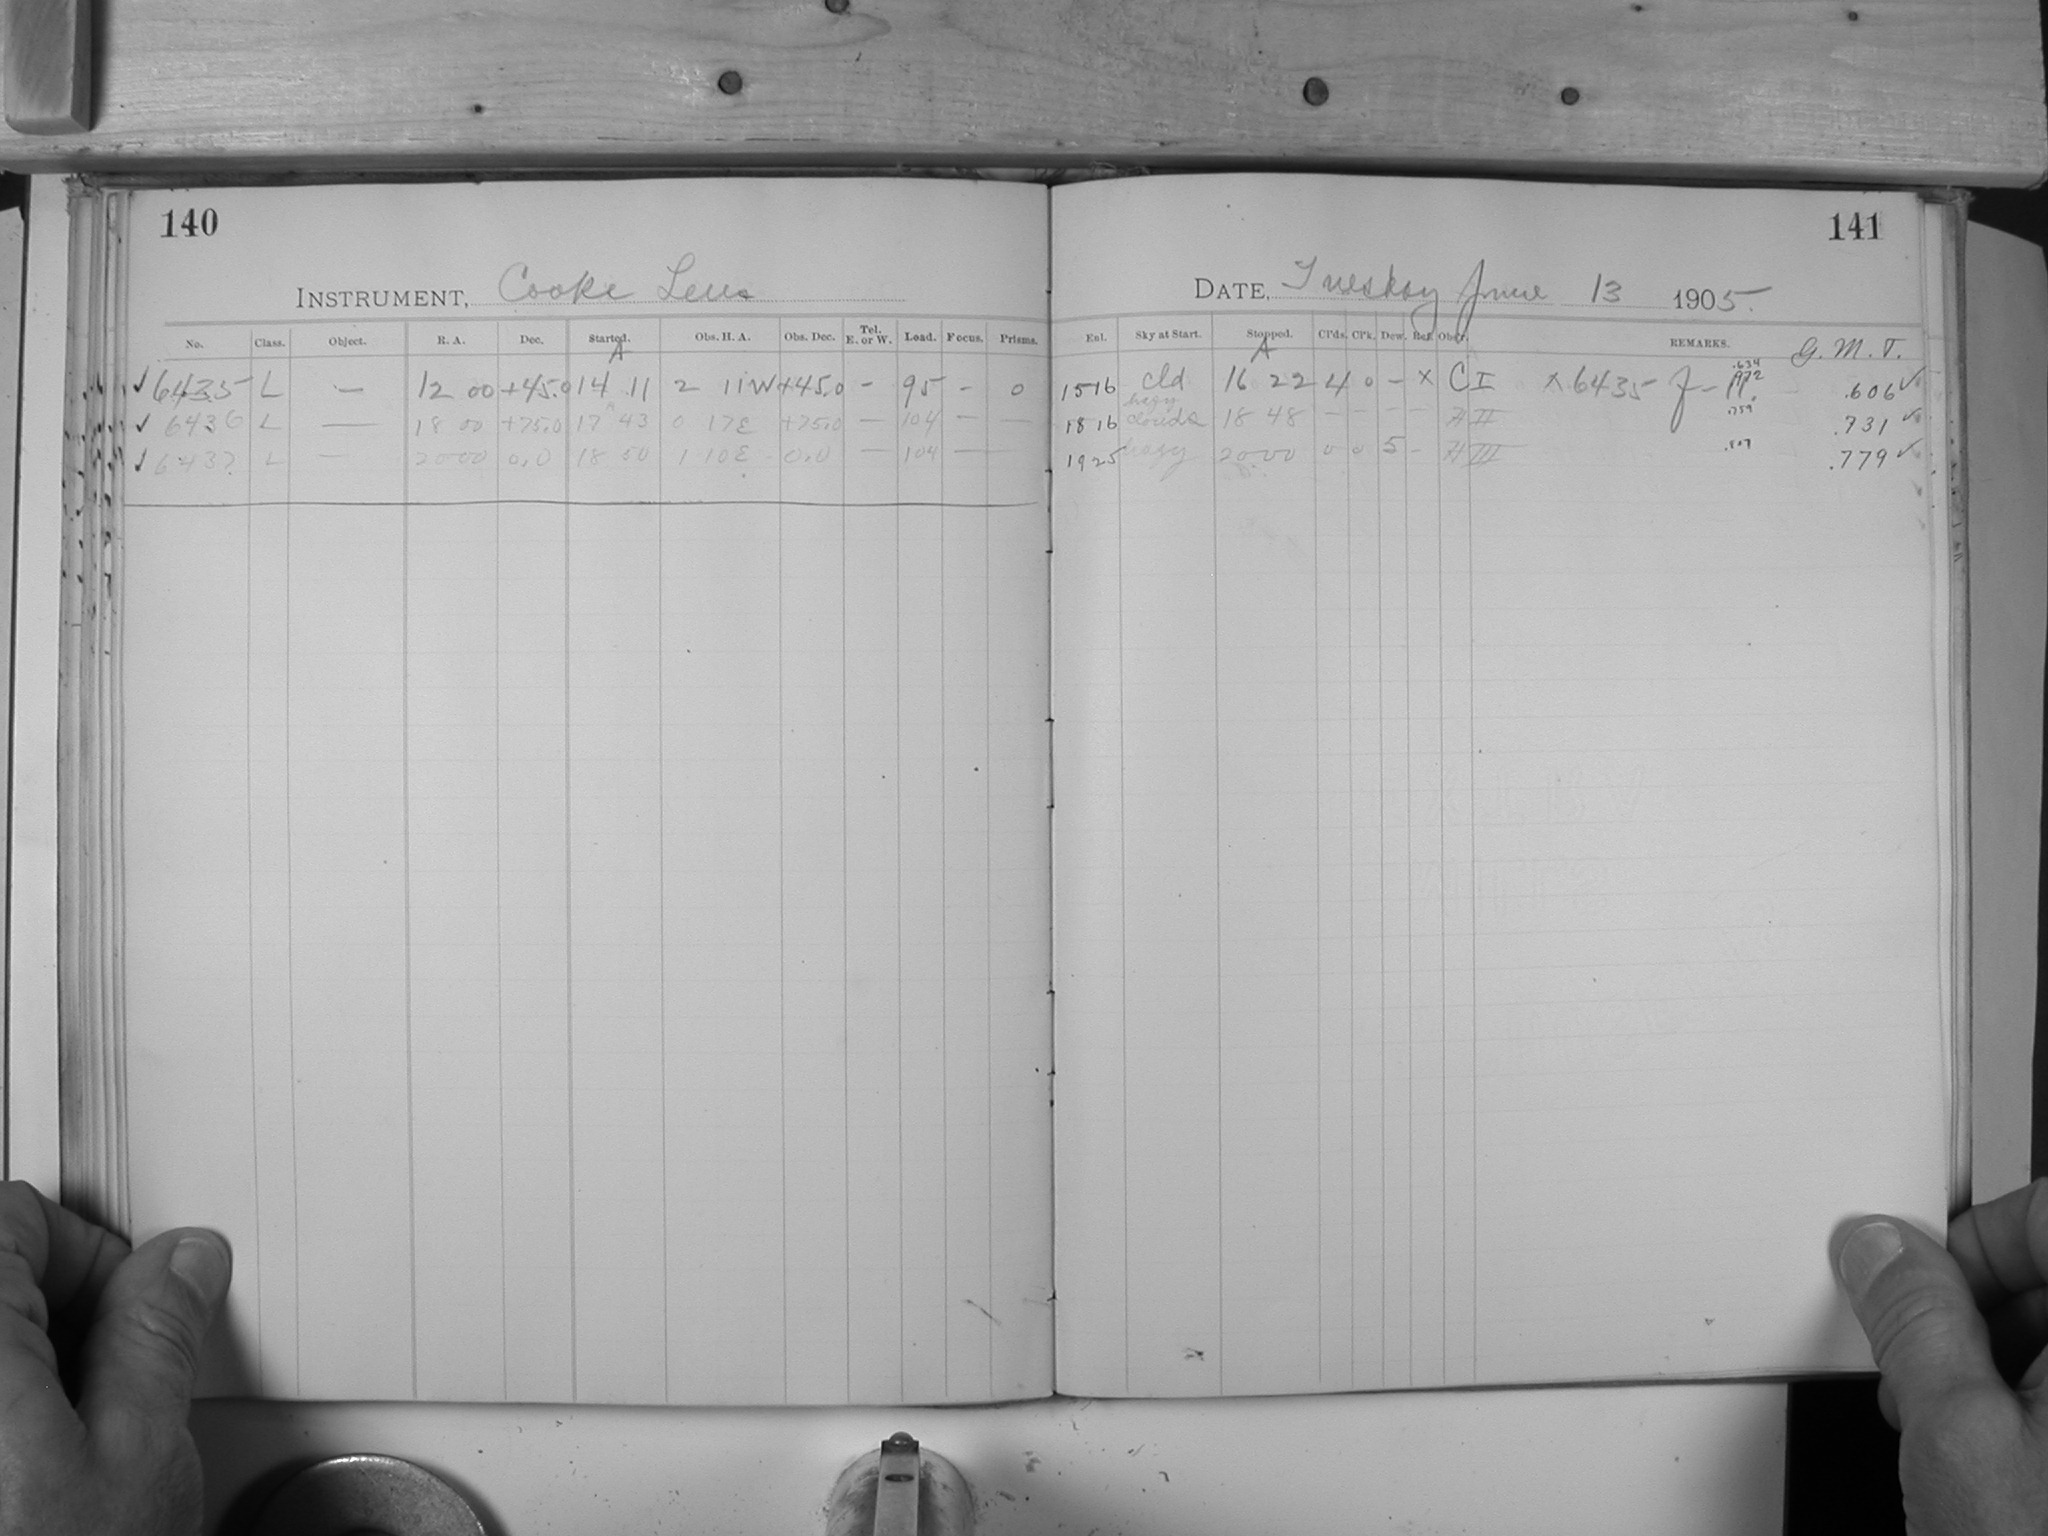 140
INSTRUMENT, Cooke Lens
No. Class. Object. R. A. Dec. Started. Obs. H. A. Obs. Dec. Tel. E. or W. Load. Focus. Prisms.
A
✓ 6435 L — 12 00 +45.0 14 11 2 11 W +45.0 - 95 - 0
✓ 6436 L — 18 00 +75.0 17 43 0 17 E +75.0 — 104 — —
✓ 6437 L — 20 00 0.0 18 50 1 10 E 0.0 — 104 — —
141
DATE, Tuesday June 13 1905.
Enl. Sky at Start. Stopped. Cl'ds. Cl'k. Dew. Ref. Obs'r. REMARKS. G. M. T.
A
1516 cld hazy 16 22 4 0 - × C I × 6435 .634 .606 ✓
1816 clouds 18 48 - - - - H II .759 .731 ✓
1925 hazy 20 00 0 0 5 - H III .807 .779 ✓